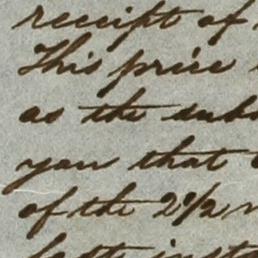 receipt of
This price
as the subs
you that
of the 2½